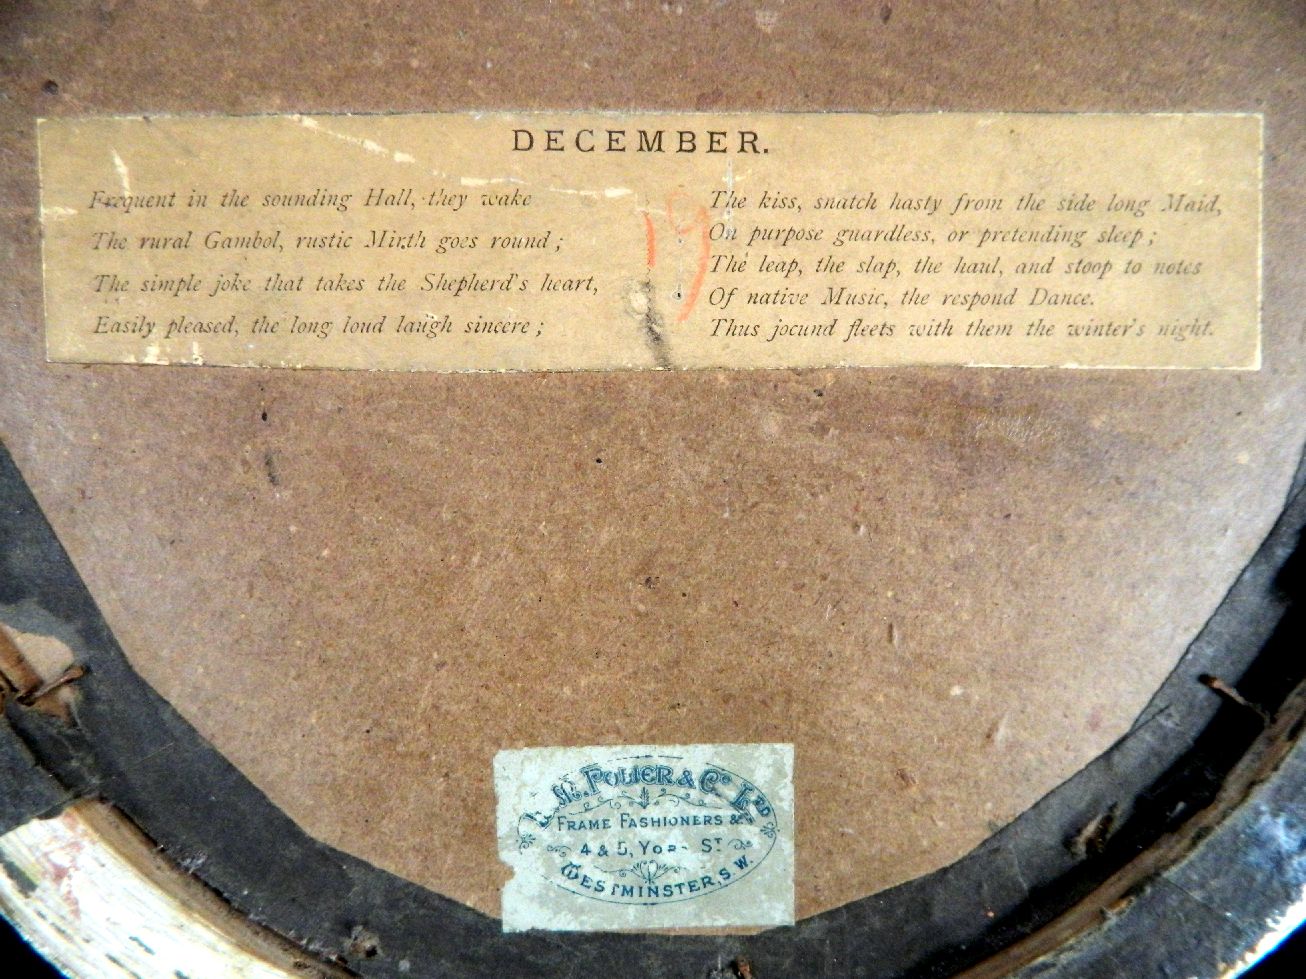 DECEMBER.
Frequent in the sounding Hall, they wake
The rural Gambol, rustic Mirth goes round ;
The simple joke that takes the Shepherd's heart,
Easily pleased, the long loud laugh sincere ;
The kiss, snatch hasty from the side long Maid,
On purpose guardless, or pretending sleep ;
The leap, the slap, the haul, and stoop to notes
Of native Music, the respond Dance.
Thus jocund fleets with them the winter's night.
19
M. POLIER & Co LTD
FRAME FASHIONERS &
4 & 5, ST
WESTMINSTER, S.W.